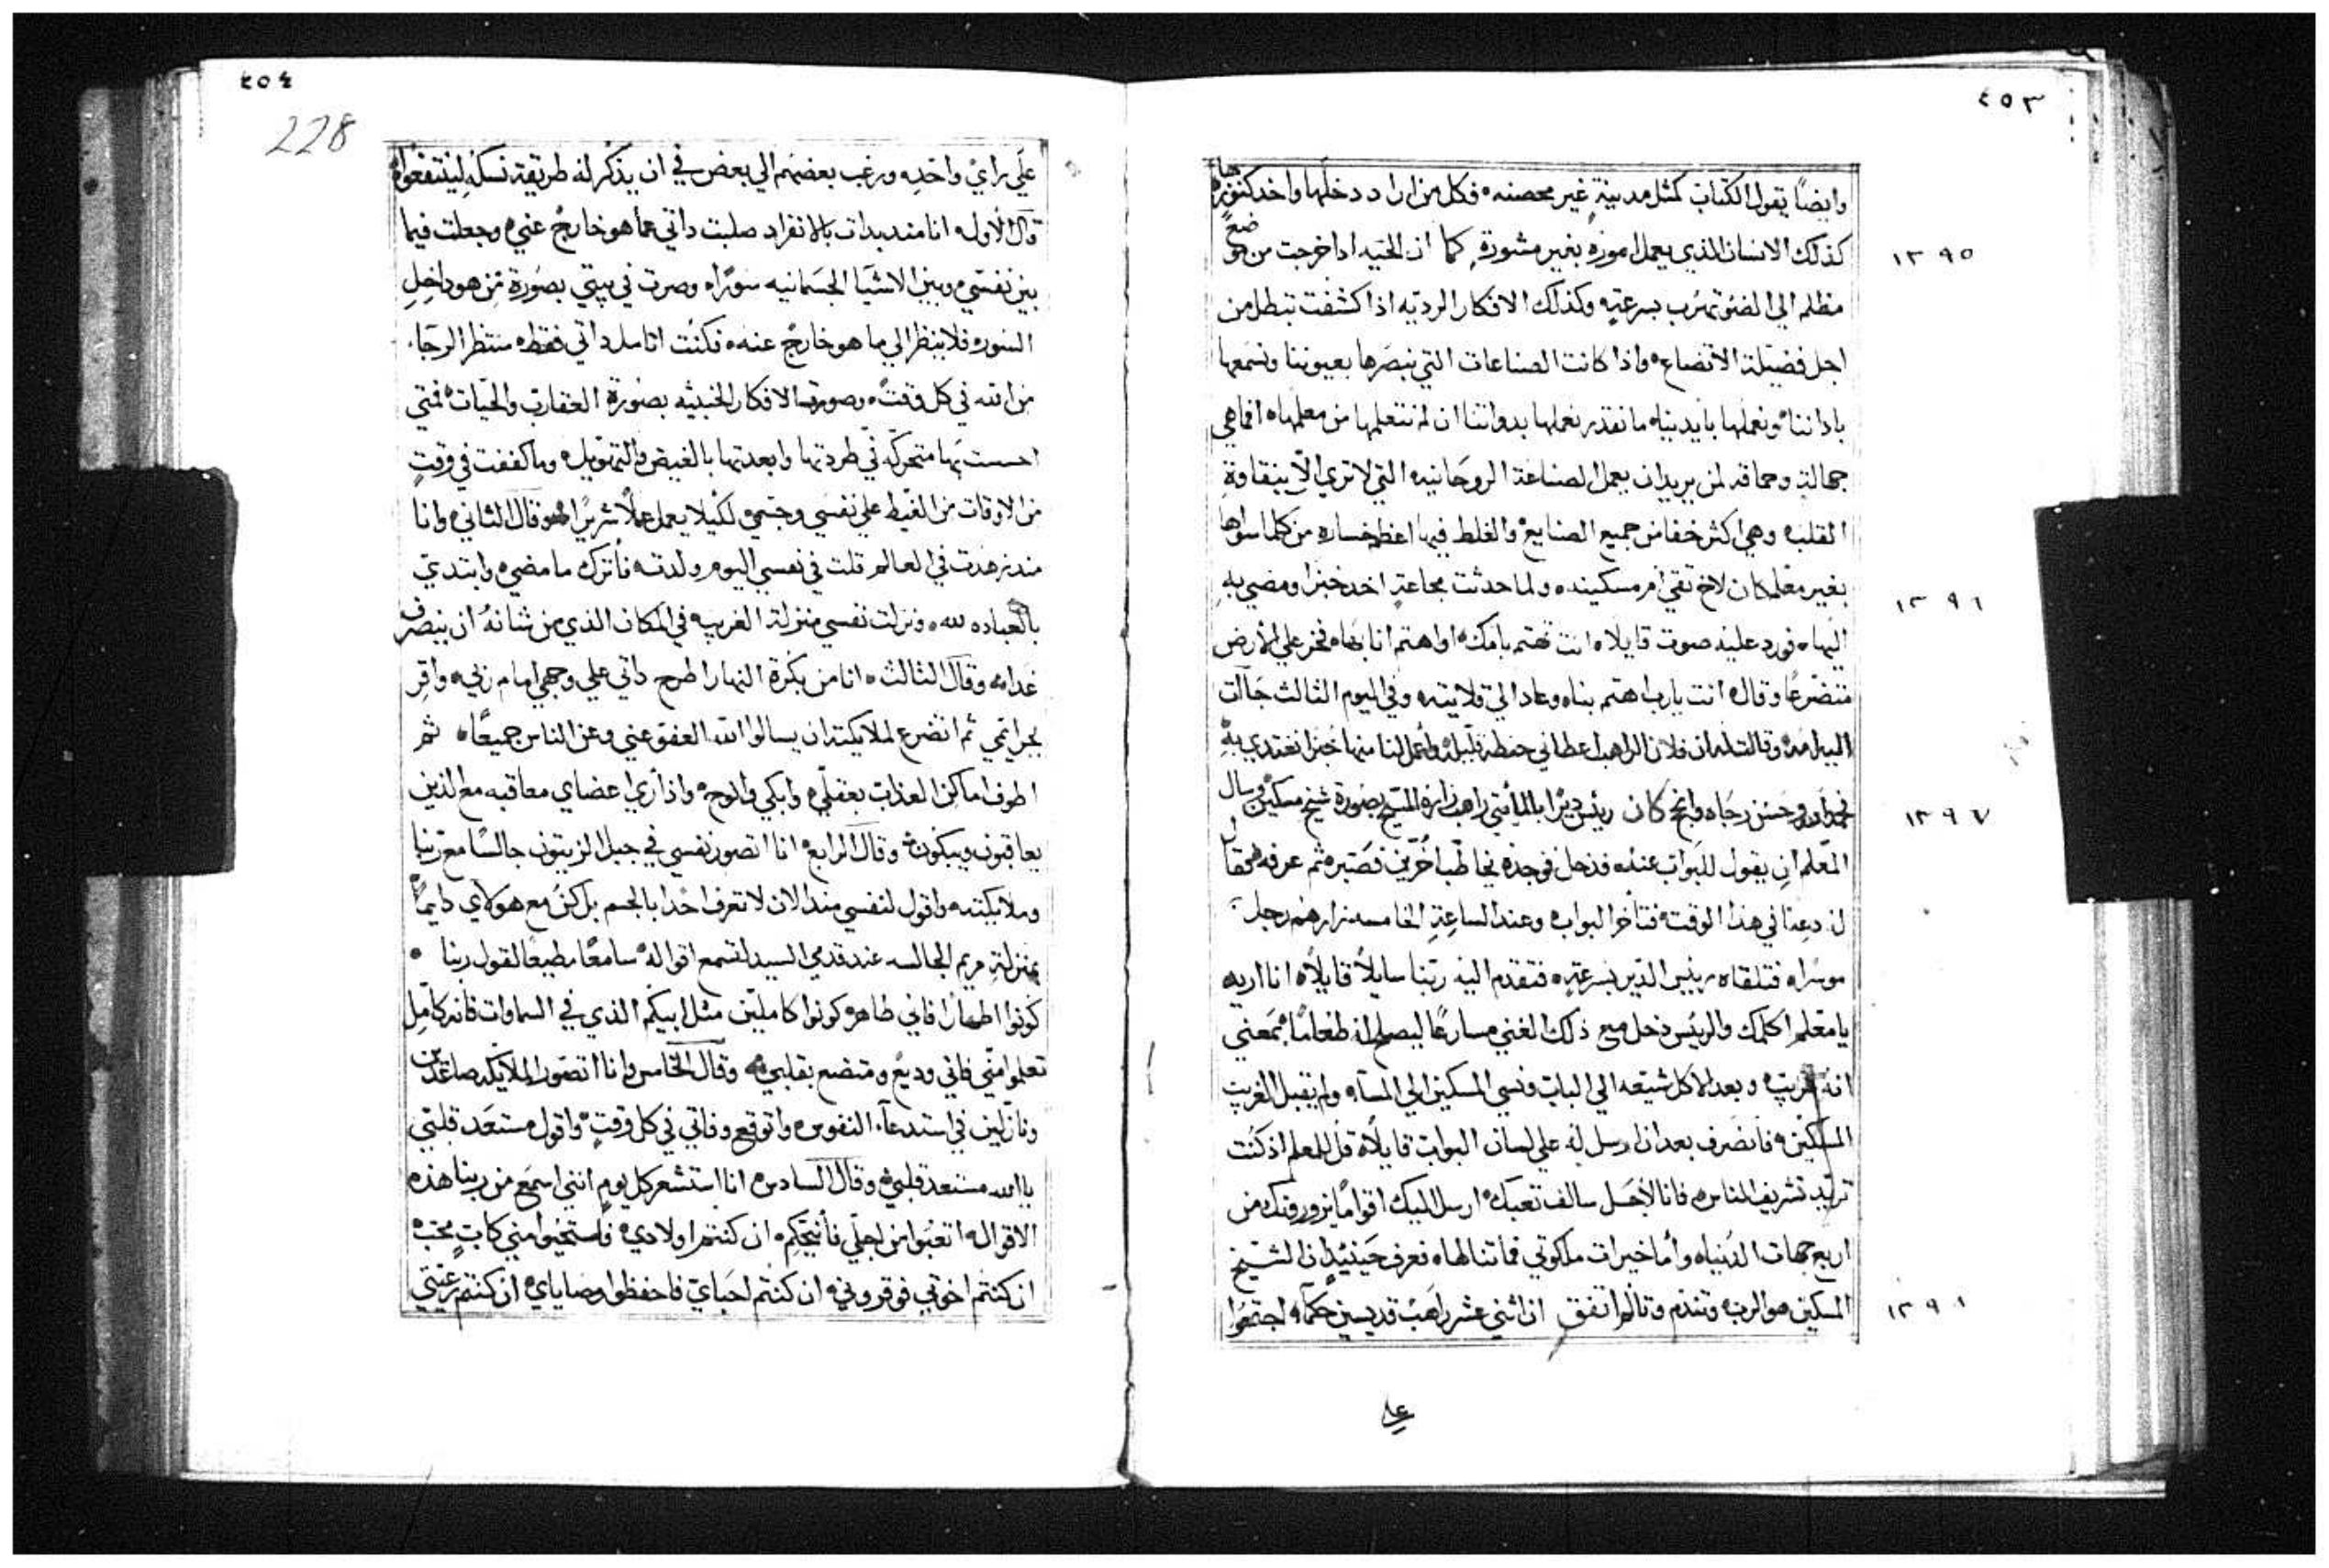 ٤٥٣
وايضًا يقول الكتاب كمثل مدينةٍ غير محصنه فكل من اراد دخلها واخد كنوزها
١٣٩٥
كذلك الانسان الذي يعمل اموره بغير مشورةٍ كما ان الحيه ادا خرجت من موضع
مظلم الي الضئو تهرب بسرعةٍ وكذلك الافكار الرديه اذا كشفت تبطل من
اجل فضيلة الاتضاع واذا كانت الصناعات التي نبصرها بعيوننا ونسمعها
بادانناه ونعملها بايديناه ما نقدر نعملها بدواتنا ان لم نتعلمها من معلمهاه افما هي
جهالة وحماقه لمن يريد ان يعمل الصناعة الروحانيه التي لا تري الا بنقاوة
القلب وهي اكثر خفا من جميع الصنايع والغلط فيها اعظم خساره من كلما سواها
١٣٩٦
بغير معلم كان لاخ تقي ام مسكينه ولما حدثت مجاعةٍ اخد خبزا ومضي به
اليهاه فورد عليه صوت قايلاه انت تهتم بامك او اهتم انا بهاه فخر علي الارض
متضرعًا وقال انت يارب اهتم بناه وعاد الي قلايته وفي اليوم الثالث جاات
اليه امه وقالت له ان فلان الراهب اعطاني حنطة قليله واعمل لنا منها خبزا نغتدي به
١٣٩٧
فمجد الله وحسن رجاه وايضًا كان رييس ديرًا بالمأيتي راهب زاره المسيح بصورة شيخ مسكين وسال
المعلم ان يقول للبواب عنه فدخل فوجده يخاطب اخرين فصبر ثم عرفه فقال
له دعنا في هذا الوقت فتاخر البواب وعند الساعةِ الخامسه زارهم رجل
موسراه فتلقاه رييس الدير بسرعةٍ فتقدم اليه ربنا سايلاً قايلاه انا اريد
يا معلم اكلمك والرييس دخل مع ذلك الغني مسارعًا ليصلح له طعامًا بمعني
انه غريب وبعد الاكل شيعه الي الباب ونسي المسكين الي المساه ولم يقبل الغريب
المسكين فانصرف بعد ان ارسل له علي لسان البواب قايلاه قل للمعلم اذ كنت
تريد تشريف الناس فانا لاجل سالف تعبك ارسل اليك اقوامًا يزورونك من
اربع جهات الدنياه واما خيرات ملكوتي فما تنالهاه فعرف حينيدٍ ان الشيخ
المسكين هو الرب وتندم وقالوا اتفق ان اثني عشر راهب قديسين حكماه اجتمعوا
١٣٩٨
علي
٤٥٤
228
علي راي واحده ورغب بعضهم الي بعض في ان يذكر له طريقة نسكه لينتفعوا
قال الاول انا مند بدات بالانفراد صلبت داتي عما هو خارج عني وجعلت فيما
بين نفسي وبين الاشيا الجسمانيه سورًاه وصرت في بيتي بصورة من هو داخل
السوره فلا ينظر الي ما هو خارج عنه فكنت اتامل داتي فقط منتظر الرجا
من الله في كل وقت وصورت الافكار الخبيثه بصورة العقارب والحيات فمتي
احسست بها متحركه في طردتها وابعدتها بالغيض والتهويل وما كففت في وقتٍ
من الاوقات من الغيط علي نفسي وجسمي لكيلا يعمل عملًا شريرًا وقال الثاني وانا
مند زهدت في العالم قلت في نفسي اليوم ولدت فأترك ما مضي وابتدي
بالعباده لله ونزلت نفسي منزلة الغريب في المكان الذي من شانه ان ينصرف
غدا وقال الثالث انا من بكرة النهار اطرح داتي علي وجهي امام ربي واقر
بجرايمي ثم اتضرع لملايكته ان يسالوا الله العفو عني وعن الناس جميعًا ثم
اطوف اماكن العذاب بعقلي وابكي وانوح واذا اري اعضاي معاقبه مع الذين
يعاقبون ويبكون وقال الرابع انا اتصور نفسي في جبل الزيتون جالسًا مع ربنا
وملايكته واقول لنفسي مند الان لا تعرف احدا بالجسم بل كن مع هولاي دايمًا
بمنزلة مريم الجالسه عند قدمي السيد لتسمع اقواله سامعًا مطيعًا لقول ربنا
كونوا اطهارا فاني طاهر كونوا كاملين مثل ابيكم الذي في السماوات فانه كامل
تعلموا مني فاني وديع ومتضع بقلبي وقال الخامس وانا اتصور الملايكه صاعدين
ونازلين في استدعاء النفوس واتوقع وفاتي في كل وقتٍ واقول مستعد قلبي
ياالله مستعد قلبي وقال السادس انا استشعر كل يوم انني اسمع من ربنا هذه
الاقوال اتعبوا من اجلي فأنيحكم ان كنتم اولادي فاستحيوا مني كابٍ محب
ان كنتم اخوتي فوقروني ان كنتم احباي فاحفظوا وصاياي ان كنتم رعيتي